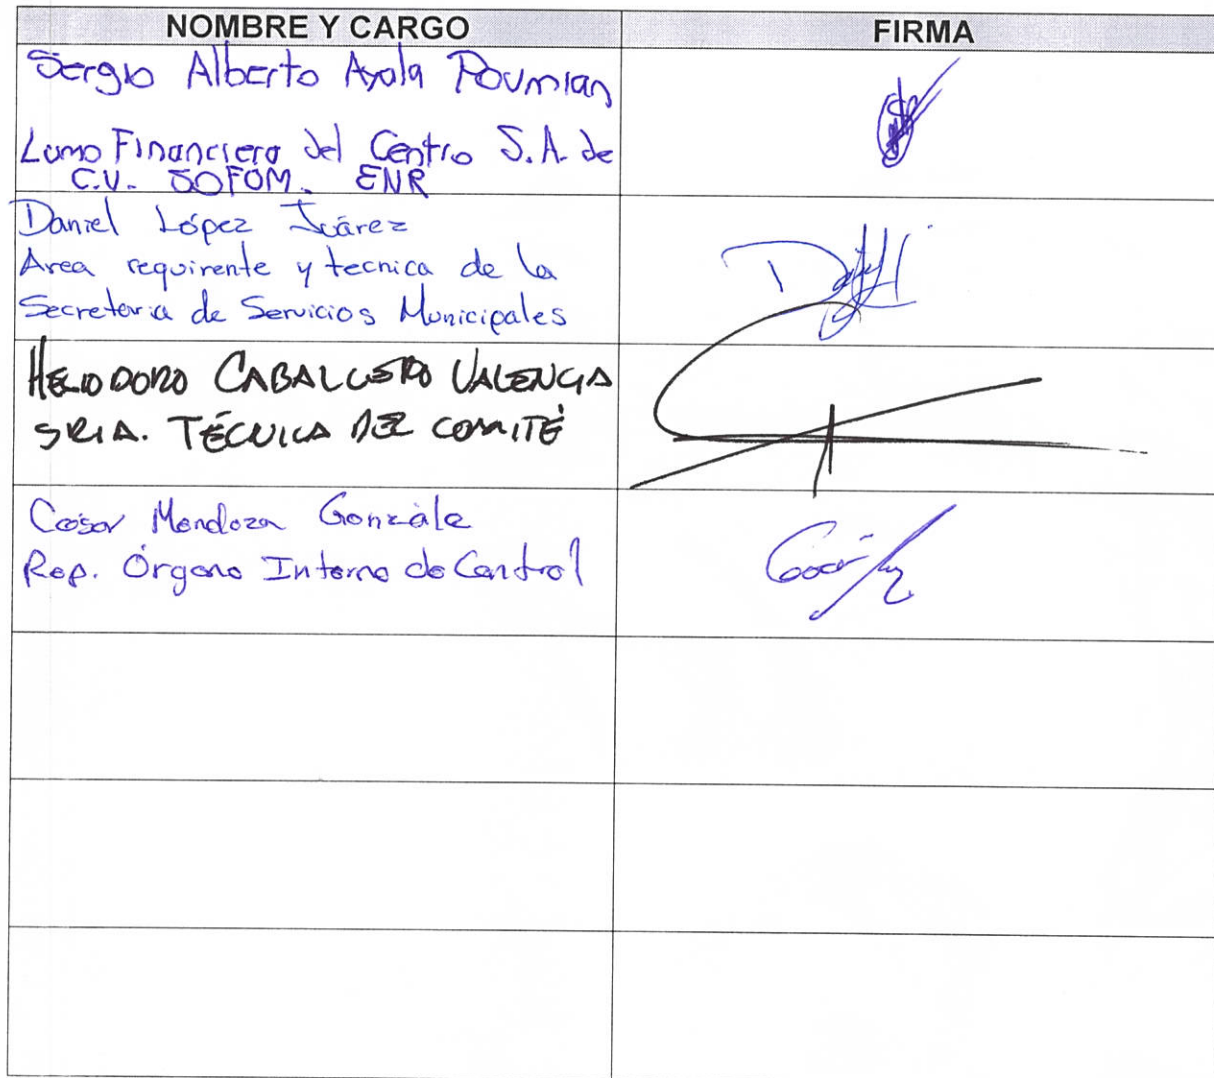 NOMBRE Y CARGO
FIRMA
Sergio Alberto Ayala Poumian
Lumo Financiera del Centro S.A. de
C.V. SOFOM. ENR
Daniel López Juárez
Area requirente y tecnica de la
Secretaria de Servicios Municipales
HELIODORO CABALLERO VALENCIA
SRIA. TÉCNICA DEL COMITÉ
César Mendoza Gonzále
Rep. Órgano Interno de Control